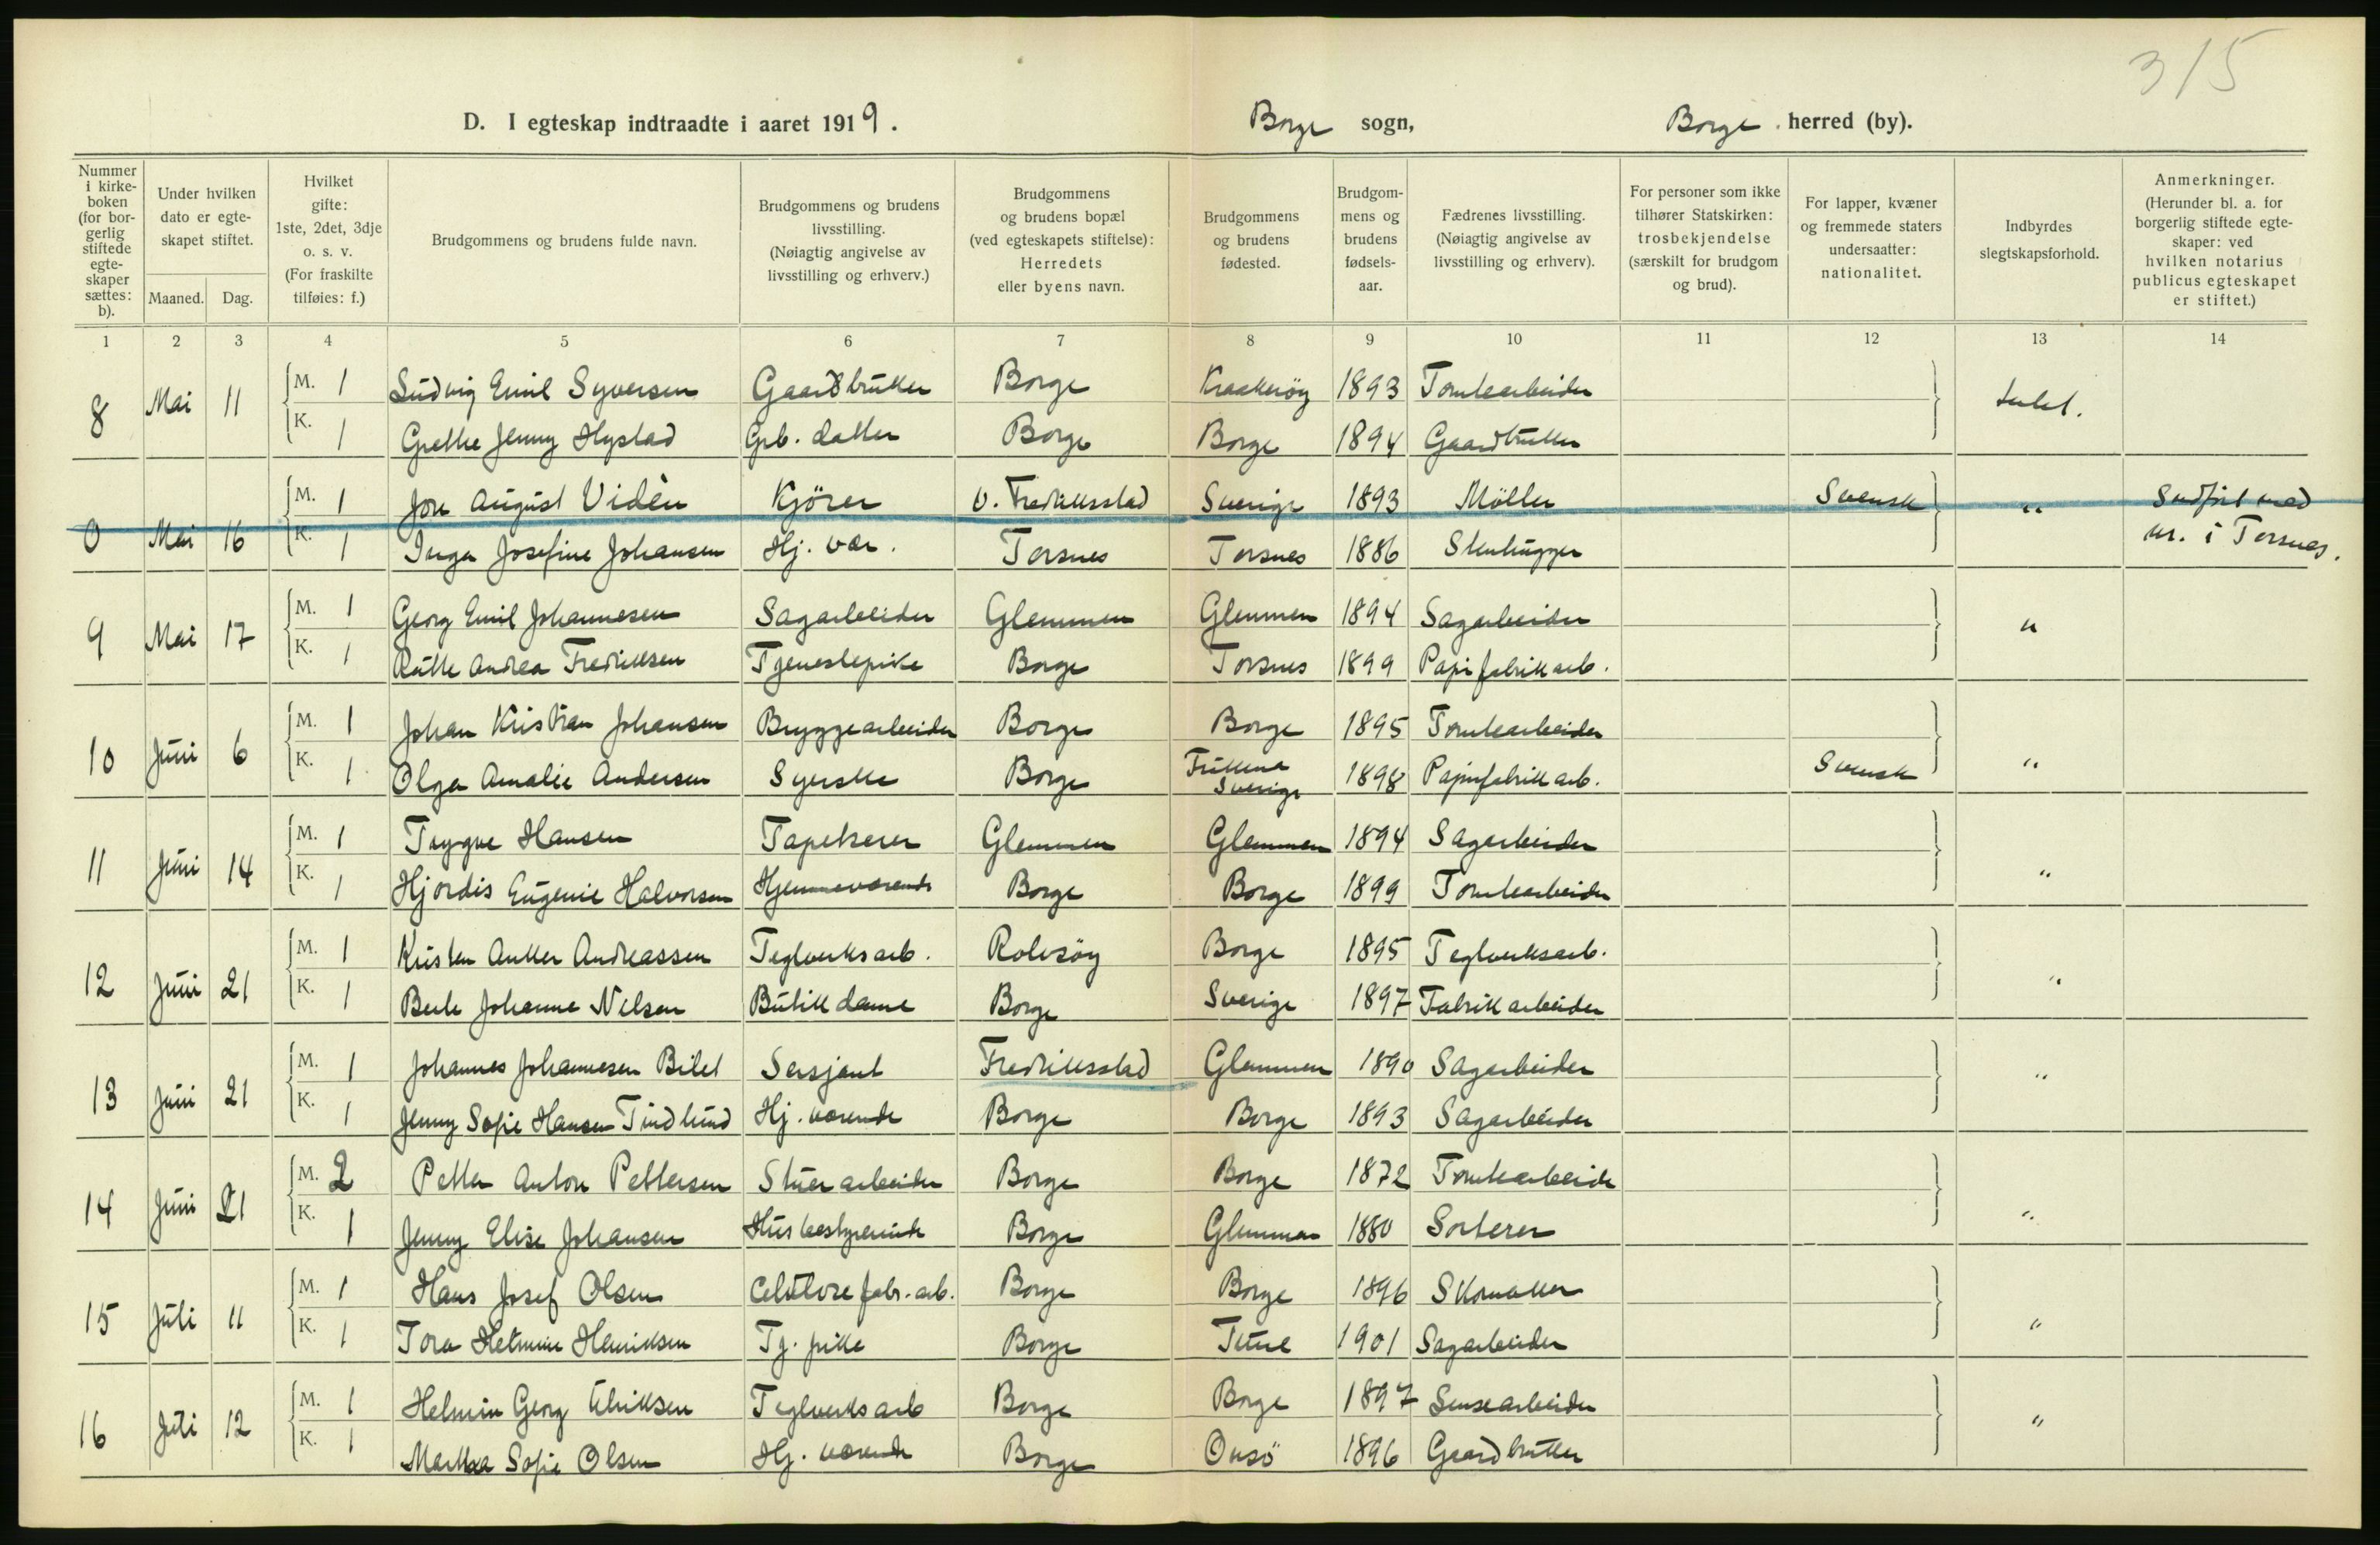 315
D. I egteskap indtraadte i aaret 1919. Borge sogn, Borge herred (by).
Nummer i kirkeboken (for borgerlig stiftede egteskaper sættes: b).
Under hvilken dato er egteskapet stiftet.
Maaned. Dag.
Hvilket gifte: 1ste, 2det, 3dje o. s. v. (For fraskilte tilføies: f.)
Brudgommens og brudens fulde navn.
Brudgommens og brudens livsstilling. (Nøiagtig angivelse av livsstilling og erhverv.)
Brudgommens og brudens bopæl (ved egteskapets stiftelse): Herredets eller byens navn.
Brudgommens og brudens fødested.
Brudgommens og brudens fødselsaar.
Fædrenes livsstilling. (Nøiagtig angivelse av livsstilling og erhverv).
For personer som ikke tilhører Statskirken: trosbekjendelse (særskilt for brudgom og brud).
For lapper, kvæner og fremmede staters undersaatter: nationalitet.
Indbyrdes slegtskapsforhold.
Anmerkninger. (Herunder bl. a. for borgerlig stiftede egteskaper: ved hvilken notarius publicus egteskapet er stiftet.)
1 2 3 4 5 6 7 8 9 10 11 12 13 14
8 Mai 11 M. 1 Ludvig Emil Syversen Gaardbruker Borge Kraakerøy 1893 Tomtearbeider intet.
K. 1 Grethe Jenny Hystad Grb. datter Borge Borge 1894 Gaardbruker
0 Mai 16 M. 1 Jon August Vidèn Kjører V. Fredriksstad Sverige 1893 Møller Svensk " Indført med
K. 1 Inga Josefine Johansen Hj. vær. Torsnes Torsnes 1886 Stenhugger nr. i Torsnes.
9 Mai 17 M. 1 Georg Emil Johannesen Sagarbeider Glemmen Glemmen 1894 Sagarbeider "
K. 1 Ruth Andrea Fredriksen Tjenestepike Borge Torsnes 1899 Papirfabrikarb.
10 Juni 6 M. 1 Johan Kristian Johansen Bryggearbeider Borge Borge 1895 Tomtearbeider
K. 1 Olga Amalie Andersen Syerske Borge Sverige 1898 Papirfabrikarb. Svensk "
11 Juni 14 M. 1 Trygve Hansen Tapetserer Glemmen Glemmen 1894 Sagarbeider
K. 1 Hjordis Eugenie Halvorsen Hjemmeværende Borge Borge 1899 Tomtearbeider "
12 Juni 21 M. 1 Kristen Anker Andreassen Teglverksarb. Rolvsøy Borge 1895 Teglverksarb.
K. 1 Berte Johanne Nilsen Butikdame Borge Sverige 1897 Fabrikarbeider "
13 Juni 21 M. 1 Johannes Johannesen Bilet Sersjant Fredriksstad Glemmen 1890 Sagarbeider "
K. 1 Jenny Sofie Hansen Tindlund Hj. værende Borge Borge 1893 Sagarbeider
14 Juni 21 M. 2 Petter Anton Pettersen Stuerarbeider Borge Borge 1872 Tomtearbeide
K. 1 Jenny Elise Johansen Husbestyrerinde Borge Glemmen 1880 Sorterer "
15 Juli 11 M. 1 Hans Josef Olsen Cellulosefabr.-arb. Borge Borge 1896 Skomaker
K. 1 Tora Helmine Henriksen Tj. pike Borge Tune 1901 Sagarbeider "
16 Juli 12 M. 1 Helmin Georg Ulriksen Teglverksarb Borge Borge 1897 Lensearbeider "
K. 1 Martha Sofie Olsen Hj. værende Borge Onsø 1896 Gaardbruker